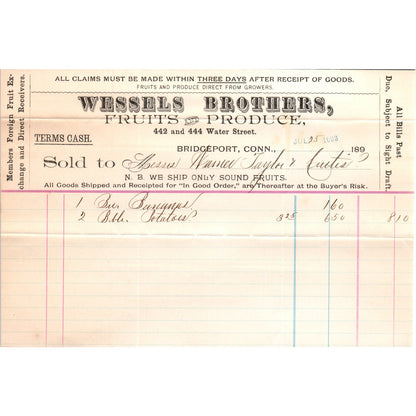 ALL CLAIMS MUST BE MADE WITHIN THREE DAYS AFTER RECEIPT OF GOODS.
FRUITS AND PRODUCE DIRECT FROM GROWERS.
WESSELS BROTHERS,
FRUITS AND PRODUCE,
442 and 444 Water Street.
TERMS CASH.
BRIDGEPORT, CONN., 189
JUL 25
Sold to Messrs Warner Taylor & Curtis
N. B. WE SHIP ONLY SOUND FRUITS.
All Goods Shipped and Receipted for "In Good Order," are Thereafter at the Buyer's Risk.
Members Foreign Fruit Exchange and Direct Receivers.
All Bills Past Due, Subject to Sight Draft.
1 Bananas 160
2 Bbls. Potatoes 325 650 810